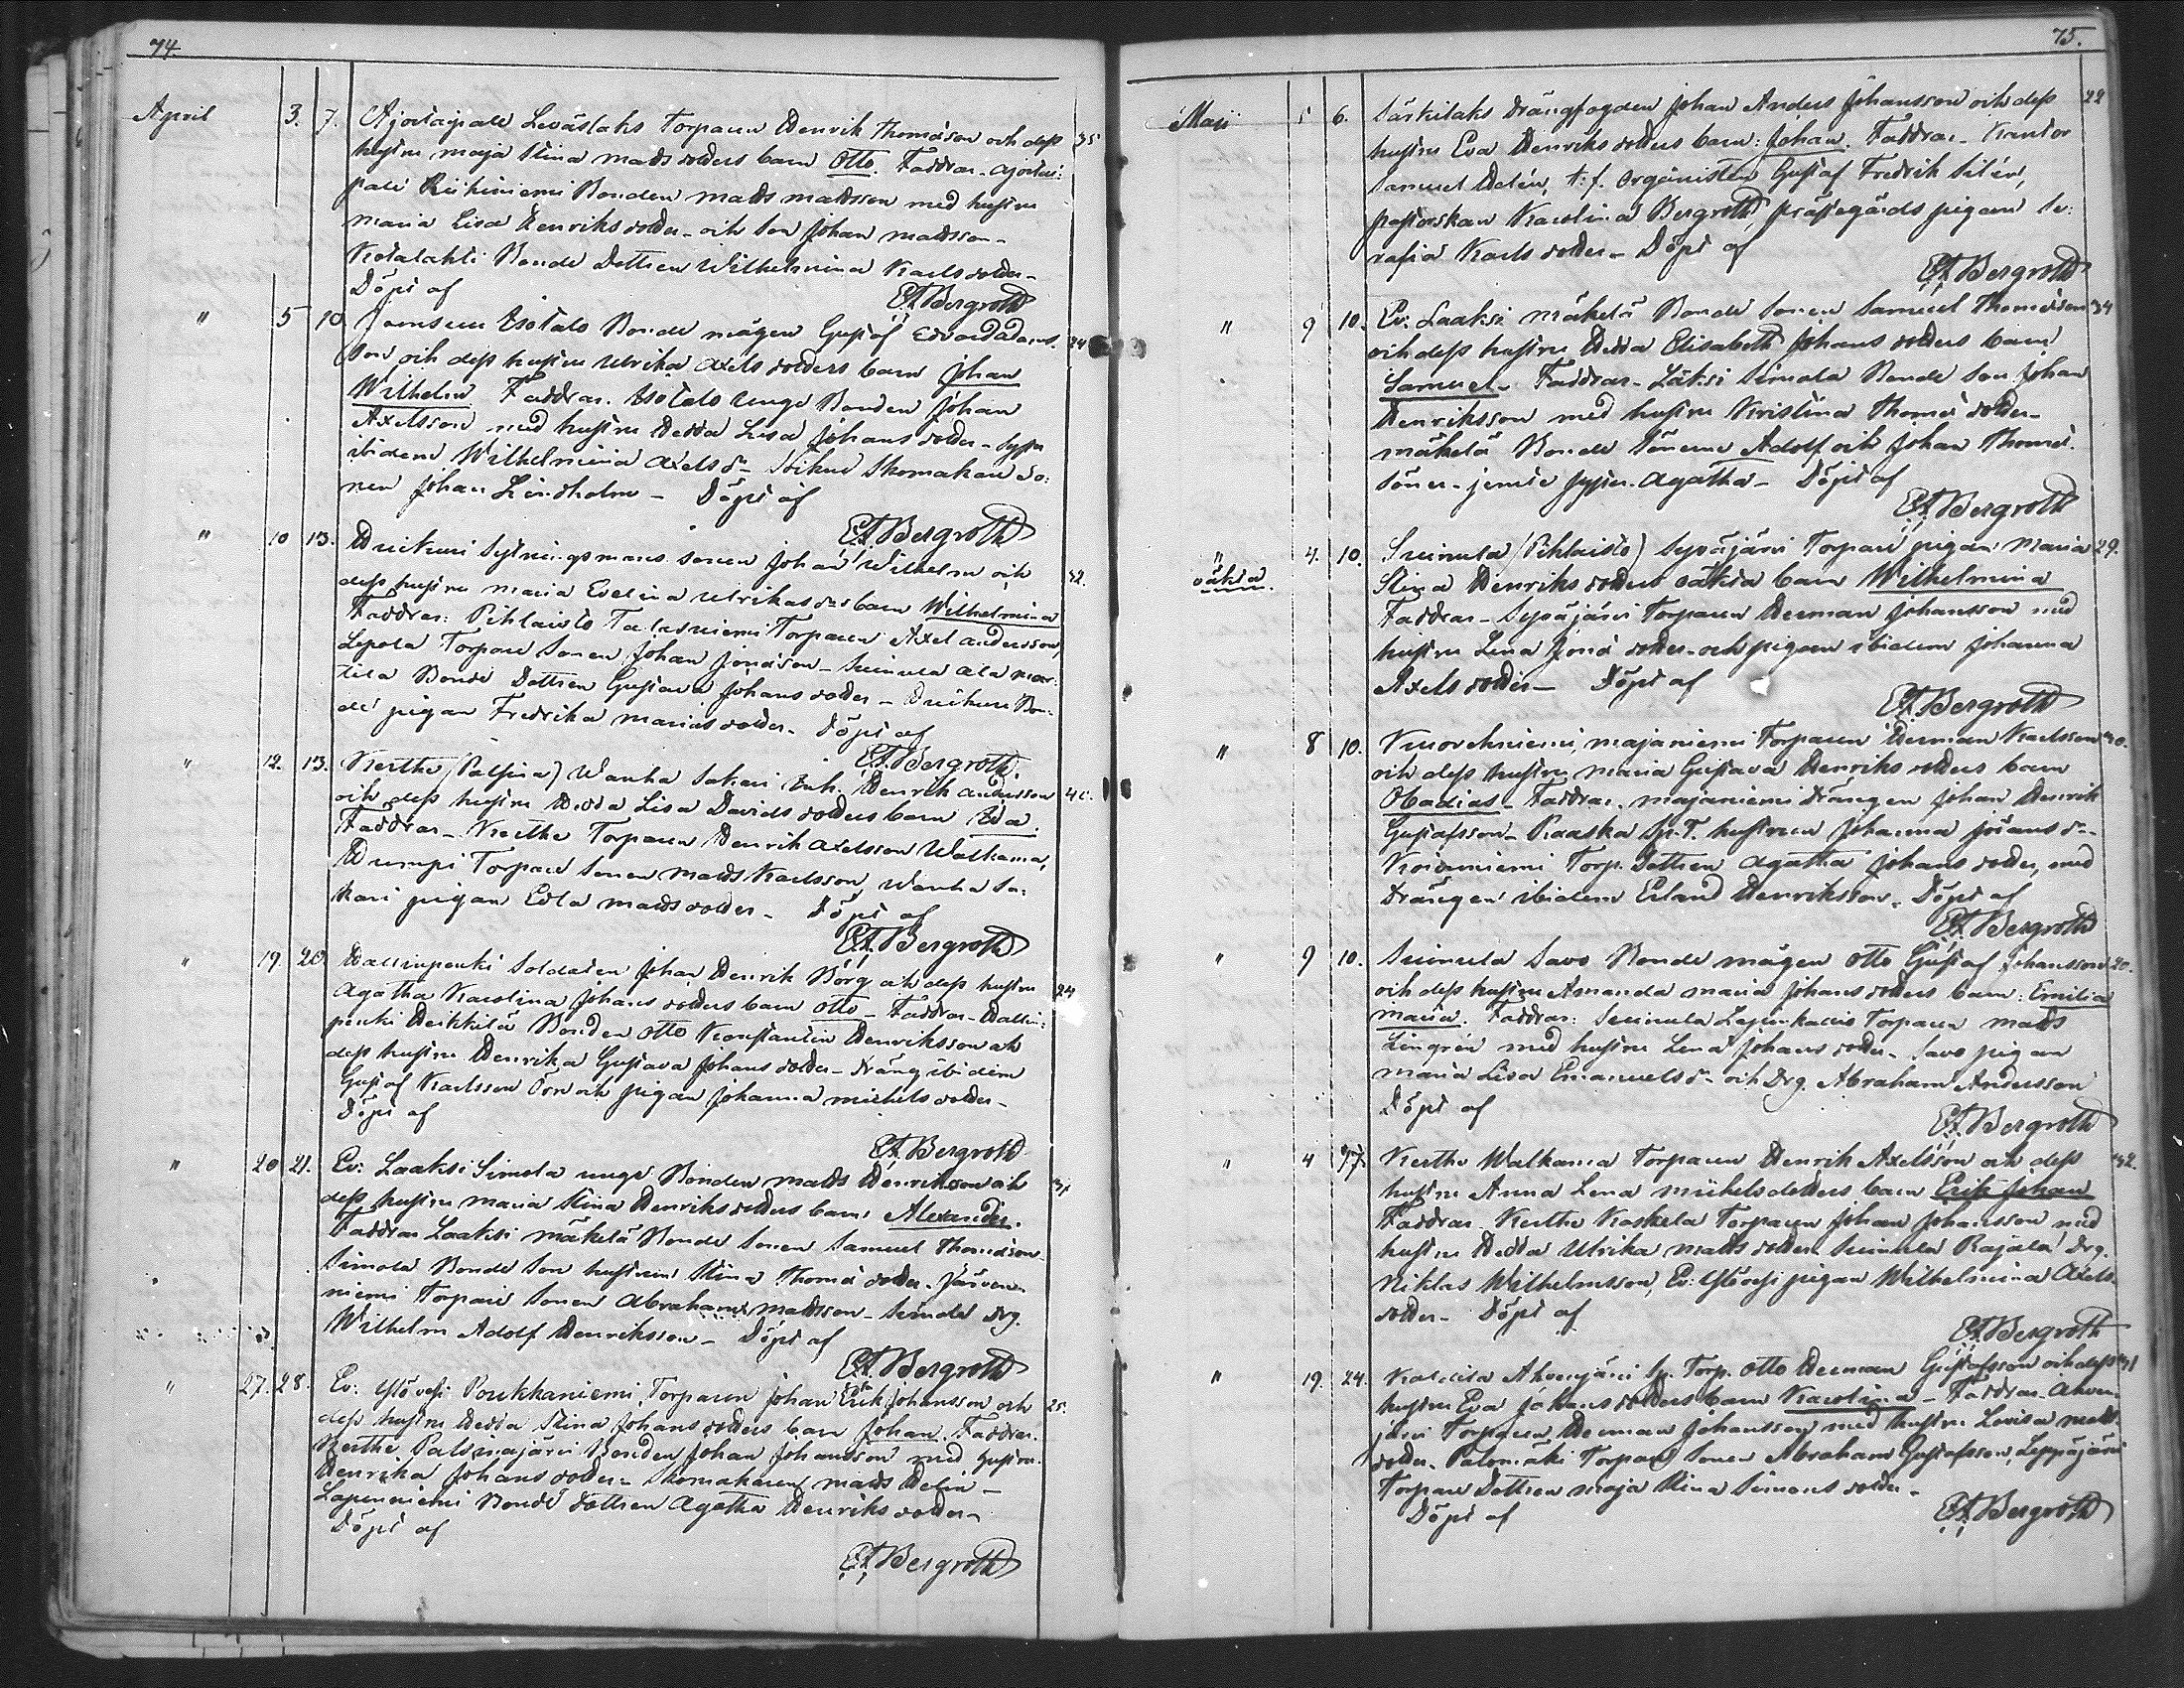 74.
April 3. 7. Ajostaipale Leväslaks Torparen Henrik Thomasson och dess 35
hustru Maja Stina Mats dotters barn Otto. Faddrar - Ajostai-
pale Riihiniemi Bonden Mats Matsson med hustru
Maria Lisa Henriks dotter - och Son Johan Matsson -
Kotalahti Bonde Dottren Wilhelmina Karls dotter -
Döpt af
E.A. Bergroth
" 5 10 Isotalo Bonde mågen Gustaf Edvard Adams- 24
son och dess hustru Ulrika Axels dotters barn Johan
Wilhelm. Faddrar. Isotalo unge Bonden Johan
Axelsson med hustru Hedda Lisa Johans dotter -
ibidem Wilhelmina Axels dr Skomakare So-
nen Johan Lindholm - Döpt af
E.A. Bergroth
" 10 13. Sytningsmans sonen Johan Wilhelm och 42.
dess hustru Maria Evelina Ulrikas drs barn Wilhelmina
Faddrar: Pihlaisto Torparen Axel Andersson,
Lepola Torpare Sonen Johan Jonasson - Suinula Ala mar-
tila Bonde Dottren Gustava Johans dotter - Bon-
de pigan Fredrika Marias dotter. Döpt af
E.A. Bergroth.
" 12. 13. Kerthe (Palsina) Wanha Sakari Inh. Henrik Andersson 40.
och dess hustru Hedda Lisa Davids dotters barn Ida.
Faddrar - Kerthe Torparen Henrik Axelsson Walkama,
Torpare Sonen Mats Karlsson, Wanha Sa-
kari pigan Edla Mats dotter - Döpt af
E.A. Bergroth
" 19. 20 Hallinpenki Soldaten Johan Henrik Borg och dess hustru 24
Agatha Karolina Johans dotters barn Otto - Faddrar - Hallin-
penki Heikkilä Bonden Otto Konstantin Henriksson och
dess hustru Henrika Gustava Johans dotter - Dräng ibidem
Gustaf Karlsson Örn och pigan Johanna Michels dotter -
Döpt af
E.A. Bergroth
" 20 21. Ev: Laaksi Simola unge Bonden Mats Henriksson och
dess hustru Maria Stina Henriks dotters barn Alexander.
Faddrar Laaksi Mäkelä Bonde Sonen Samuel Thomasson
Simola Bonde Son hustrun Stina Thomas dotter. Järven-
niemi Torpare Sonen Abraham Matsson - Simola Drg.
Wilhelm Adolf Henriksson - Döpt af
E.A. Bergroth
" 27. 28. Ev: Ylövesi Poukkaniemi Torparen Johan Erik Johansson och 25.
dess hustru Hedda Stina Johans dotters barn Johan. Faddrar.
Kerthe Palsinajärvi Bonden Johan Johansson med hustru
Henrika Johans dotter - Skomakaren Mats Helin -
Lapinniemi Bonde Dottren Agatha Henriks dotter -
Döpt af
E.A. Bergroth
75.
Maji 5 6. Särkilaks Drängfogden Johan Anders Johansson och dess 22
hustru Eva Henriks dotters barn: Johan. Faddrar - Kantor
Samuel Helén, t.f. Organisten Gustaf Fredrik Silén,
pastorskan Karolina Bergroth, prästegårds pigan Se-
rafia Karls dotter - Döpt af
E.A. Bergroth
" 9 10. Ev: Laaksi Mäkelä Bonde Sonen Samuel Thomasson 34
och dess hustru Hedda Elisabeth Johans dotters barn
Samuel - Faddrar - Läksi Simola Bonde Son Johan
Henriksson med hustru Kristina Thomas dotter -
Mäkelä Bonde Sönerne Adolf och Johan Thomas
Söner - jemte Agatha - Döpt af
E.A. Bergroth
" 4. 10. Suinula (Pihlaisto) Syväjärvi Torpare pigan Maria 29.
oäkta. Stina Henriks dotters oäkta barn Wilhelmina
Faddrar - Syväjärvi Torparen Herman Johansson med
hustru Lena Jonas dotter - och pigan ibidem Johanna
Axels dotter - Döpt af
E.A. Bergroth
" 8 10. Kuorehniemi, Majaniemi Torparen Herman Karlsson 40.
och dess hustru Maria Gustava Henriks dotters barn
Obadias - Faddrar. Majaniemi Drängen Johan Henrik
Gustafsson - Raaska Sp.T. hustrun Johanna Johans dr -
Koivuniemi Torp. Dottren Agatha Johans dotter, med
Drängen ibidem Erland Henriksson. Döpt af
E.A. Bergroth
" 9 10. Suinula Savo Bonde mågen Otto Gustaf Johansson 20.
och dess hustru Amanda Maria Johans dotters barn: Emilia
Maria. Faddrar: Suinula Torparen Mats
Lingrén med hustru Lena Johans dotter - Savo pigan
Maria Lisa Emanuels dr och Drg. Abraham Andersson
Döpt af
E.A. Bergroth
" 4 17. Kerthe Walkama Torparen Henrik Axelsson och dess 42.
hustru Anna Lena Michels dotters barn Erik Johan
Faddrar. Kerthe Koskela Torparen Johan Johansson med
hustru Hedda Ulrika Mats dotter Suinula Rajala Drg.
Niklas Wilhelmsson, Ev: Ylövesi pigan Wilhelmina Axels
dotter - Döpt af
E.A. Bergroth
" 19. 24. Ahvenjärvi Sp. Torp. Otto Herman Gustafsson och dess
hustru Eva Johans dotters barn Karolina - Faddrar. Ahven-
järvi Torparen Herman Johansson med hustru Lovisa Mats
dotter. Palomäki Torpare Sonen Abraham Gustafsson, Leppäjärvi
Torpare Dottren Maja Stina Simons dotter -
Döpt af
E.A. Bergroth